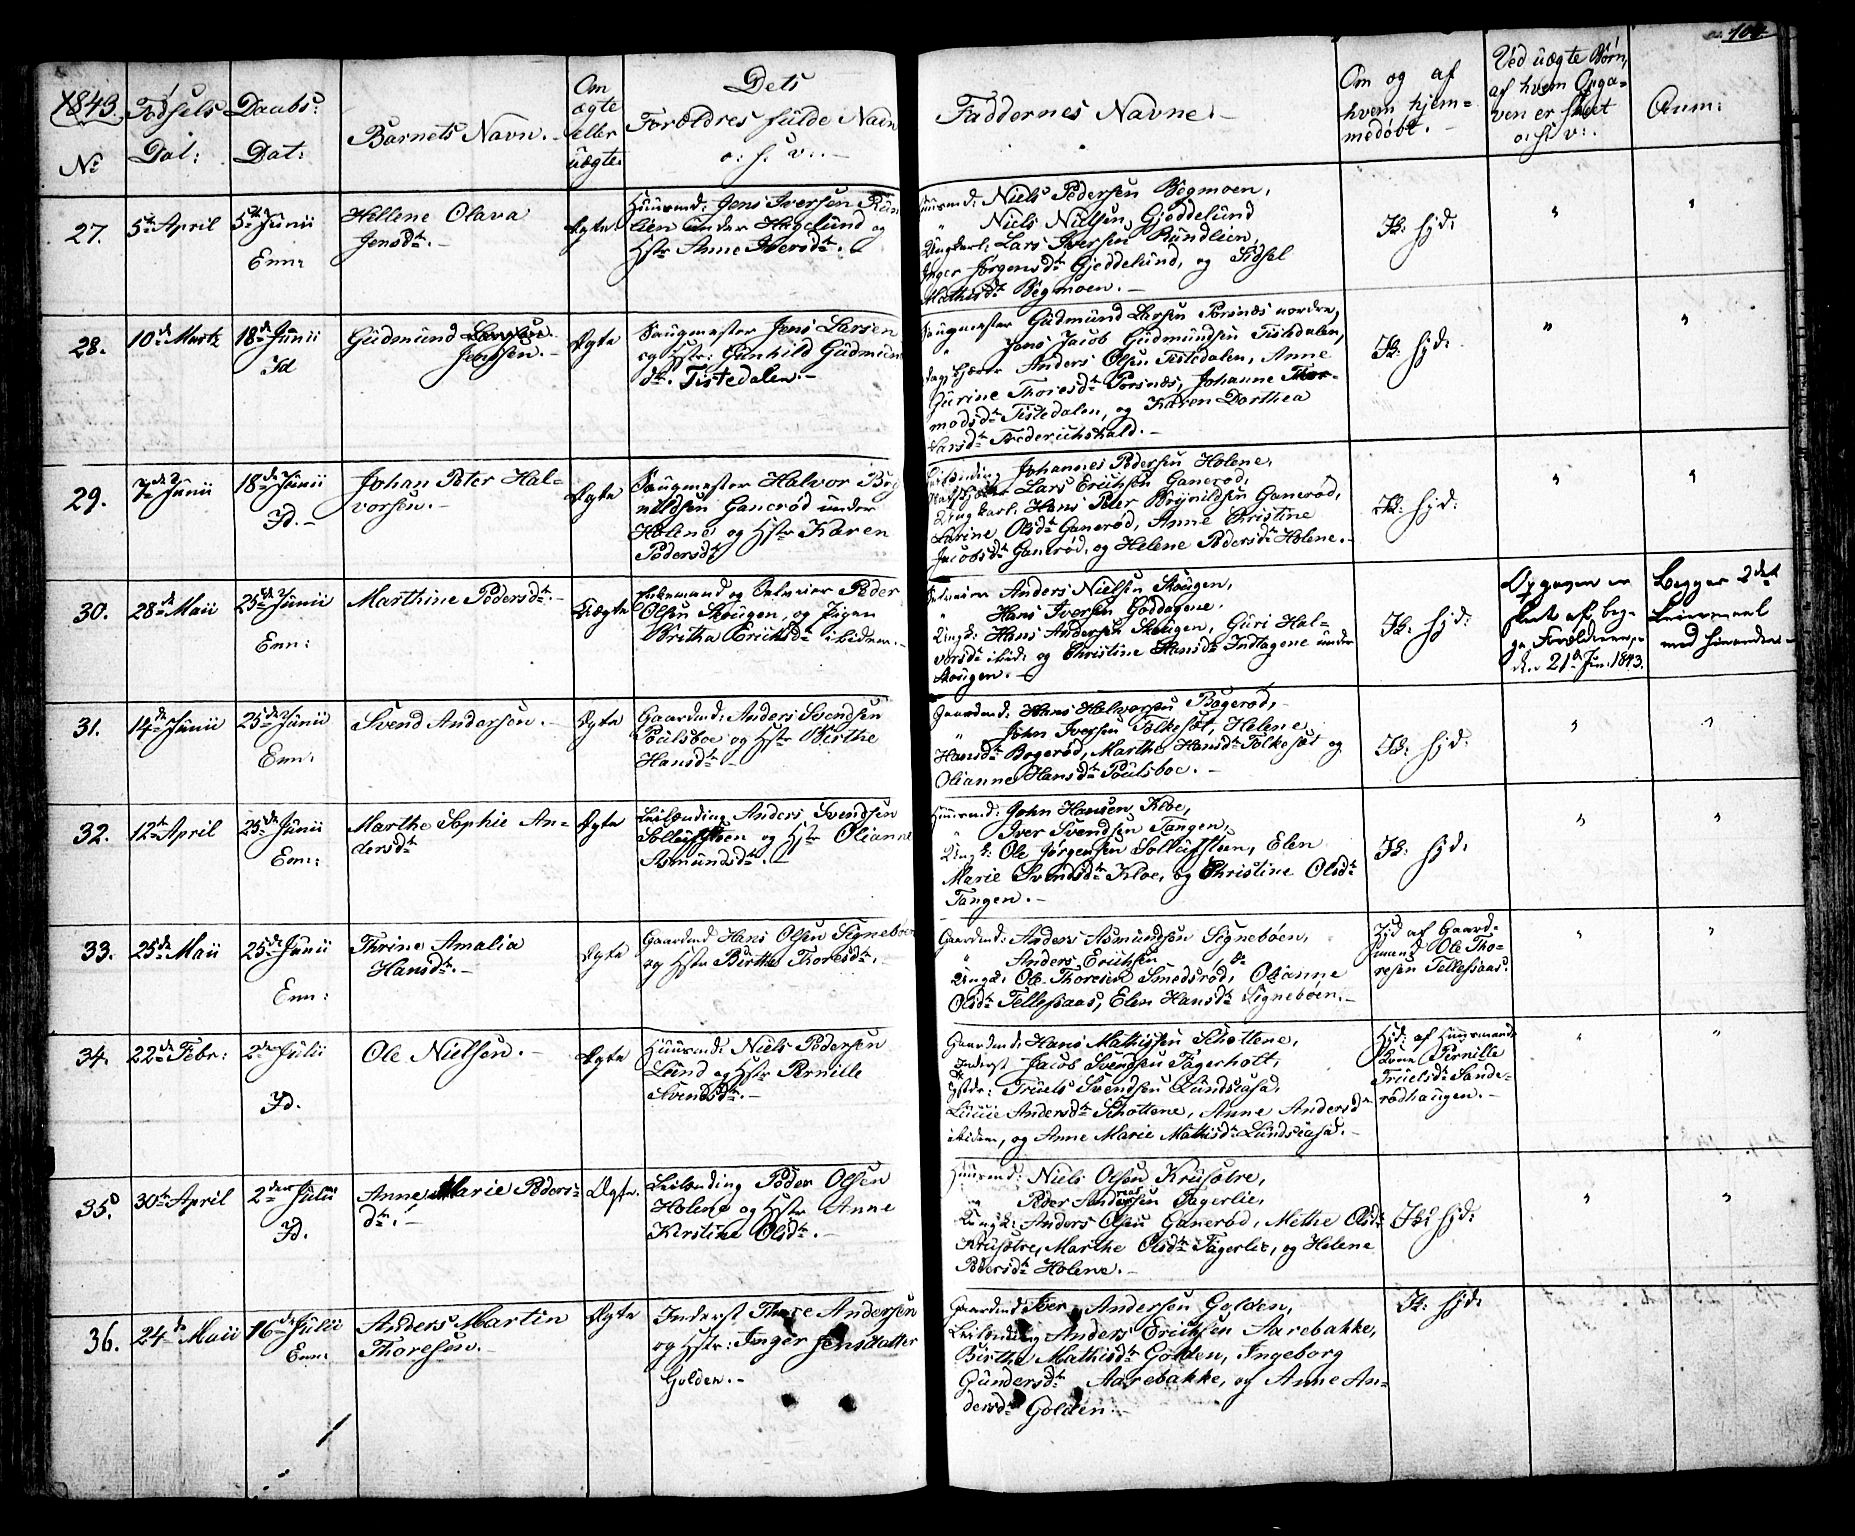 104
1843.
No
Fødsels
Dat:
Daabs:
Dat:
Barnets Navn.
Om
ægte
eller
uægte.
Dets
Forældres fulde Navn
o: s. v:. -
Faddernes Navne. -
Om og af
hvem hjem-
medøbt. -
Ved uægte Børn,
af hvem Opga-
ven er skeet
o: s: v:.
Anm:
27.
5te April
5te Junii
Enn:
Hellene Olava
Jensdtr. -
Ægte
Huusmd: Jens Iversen Rün
lien under Hügelund og
Hstr Anne Iversdtr. -
Huusmd: Niels Pedersen Bigmoen,
" Niels Nielsen Gjeddelund
Ungkarl: Lars Iversen Ründlien,
Inger Jørgensdtr Gjeddelund, og Sidsel
Mathisdtr Bigmoen. -
Ik: hjd:
"
"
28.
10de Martz
18de Junii
Id
Güdmünd Larsen
Jenssen. -
Ægte
Saugmester Jens Larsen
og Hstr: Günhild Güdmün
dtr. Tistedalen. -
Saugmester Güdmünd Larsen Porsnæs nordre,
" Jens Jacob Güdmündsen Tistedalen,
Anders Olsen Tistedalen, Anne
Gurine Thoresdtr Porsnæs, Johanne Thor-
modsdtr Tistedalen, og Karen Dorthea
Larsdtr Frederichshald. -
Ik: hjd:
"
"
29.
7de Junii
18de Junii
Id. -
Johan Peter Hal-
vorsen. -
Ægte
Saugmester Halvor Bry
nildsen Ganerød under
Holene, og Hstr Karen
Pedersdtr
Leilænding Johannes Pedersen Holene,
Lars Erichsen Ganerød,
Ungkarl: Hans Peter Brynildsen Ganerød,
Larine Olsdtr Ganerød, Anne Christine
Jacobsdtr Ganerød, og Helene Pedersdtr Holene. -
Ik: hjd:
"
"
30.
28de Maii
25de Junii
Enn:
Marthine Pedersdtr. -
Uægte
Enkemand og Selveier Peder
Olsen Skougen, og Pigen
Britha Erichsdtr ibidem. -
Selveier Anders Nielsen Skougen,
" Hans Iversen Goddagene,
Ungk: Hans Andersen Skougen, Guri Hal-
vorsdtr ibid: og Christine Hansdtr Indlagene under
Skougen. -
Ik: hjd:
Opgaven er
skeet af beg-
ge Forældrene
den 21de Jun: 1843.
Begges 2det
Leiermaal
med hinanden -
31.
14de Junii
25de Junii
Enn:
Svend Andersen. -
Ægte
Gaardmd: Anders Svendsen
Poulsboe og Hstr Birthe
Hansdtr -
Gaardmd: Hans Halvorsen Bøgerød, -
" John Iversen Folkesøt, Helene
Hansdtr Bøgerød, Marthe Hansdtr Folkesøt og
Olianne Hansdtr Poulsboe. -
Ik: hjd:
"
"
32.
12te April
25de Junii
Enn:
Marthe Sophie An-
dersdtr
Ægte
Leilænding Anders Svendsen
Solleufsteen og Hstr Olianne
Asmundsdtr. -
Huusmd: John Hansen Kloe,
" Iver Svendsen Tangen,
Ungk: Ole Jørgensen Solleufsteen, Elen
Marie Svendsdtr Kloe, og Christine Olsdtr
Tangen. -
Ik: hjd:
"
"
33.
25de Maii
25de Junii
Enn:
Thrine Amalia
Hansdtr. -
Ægte
Gaardmd Hans Olsen Signebøen
og Hstr Birthe Thoresdtr. -
Gaardmd: Anders Asmundsen Signebøen,
" Anders Erichsen , do
Ungk: Ole Thoresen Smedsrød, Olianne
Olsdtr Tellefsaas, Elen Hansdtr Signebøen. -
Hjd af Gaard-
mand Ole Tho-
resen Tellefsaas.
"
"
34.
22de Febr:
2den Julii
Id.
Ole Nielsen. -
Ægte
Huusmd: Niels Pedersen
Lund og Hstr Pernille
Svendsdtr. -
Gaardmd: Hans Mathisen Schottene,
Inderst Jacob Svendsen Fagerholt,
Truels Svendsen Lundscasa,
Andersdtr Schottene, Anne Andersdtr
ibidem, og Anne Marie Mathisdtr Lundscasa. -
Hjd: af Huusmands
Kone Pernille
Truelsdtr Sande-
rødhaugen. -
"
"
35.
30te April
2den Julii
Id.
Anne Marie Peders-
dtr. -
Ægte.
Leilænding Peder Olsen
Holene og Hstr Anne
Kirstine Olsdtr. -
Huusmd: Niels Olsen Krusøtre,
Peder Andreassen Fagerlie,
Ungk: Anders Olsen Ganerød, Methe Olsdtr
Krusøtre, Marthe Olsdtr Fagerlie, og Helene
Pedersdtr Holene. -
Ik: hjd:
"
"
36.
24de Maii
16de Julii
Enn:
Anders Martin
Thoresen. -
Ægte
Inderst Thore Andersen
og Hstr: Inger Jensdatter
Golden. -
Gaardmd Iver Andersen Golden,
Leilænding Anders Erichsen Aarebakke,
Birthe Mathisdtr Golden, Ingeborg
Gundersdtr Aarebakke, og Anne An-
dersdtr Golden. -
Ik: hjd: